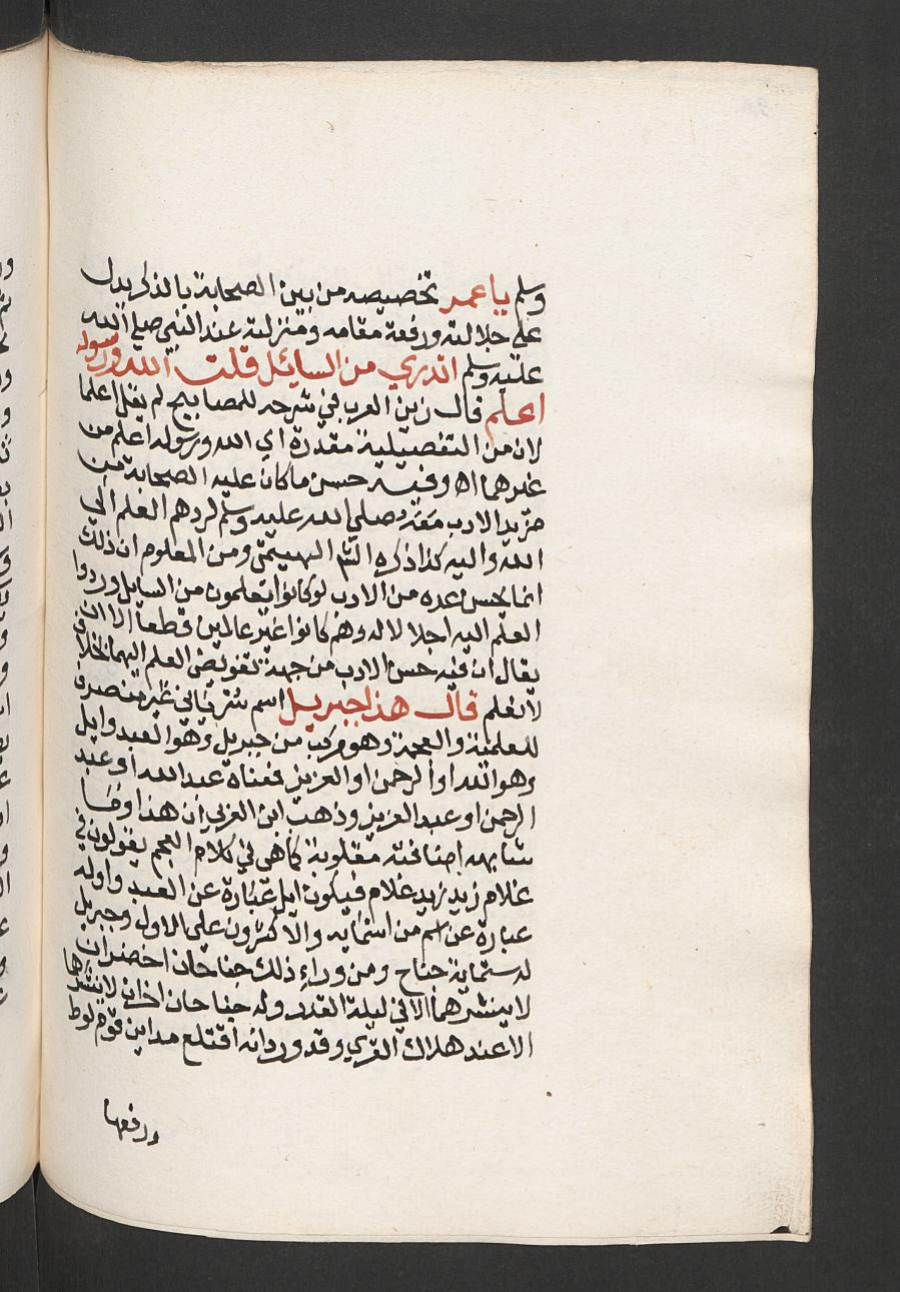 وسلم يا عمر تخصيصه من بين الصحابة بالذكر يدل
على جلالته ورفعة مقامه ومنزلته عند النبي صلي الله
عليه وسلم اتدري من السايل قلت الله ورسوله
اعلم قال زين العرب في شرحه للمصابيح لم يقل اعلما
لان من التفصيلية مقدرة اي الله ورسوله اعلم من
غيرهما اه وفيه حسن ما كان عليه الصحابة من
مزيد الادب معه صلي الله عليه وسلم لردهم العلم الي
الله واليه كذا ذكره الهيتمي ومن المعلوم ان ذلك
انما يحسن عده من الادب لو كانوا يعلمون من السايل وردوا
العلم اليه اجلالا له وهم كانوا غير عالمين قطعا الا ان
يقال ان فيه حسن الادب من جهة تفويض العلم اليهما بخلاف
لا نعلم قال هذا جبريل اسم سرياني غير منصرف
للعلمية والعجمة وهو مركب من جبريل وهو العبد وايل
وهو الله او الرحمن او العزيز فمعناه عبد الله او عبد
الرحمن او عبد العزيز وذهب ابن العربي ان هذا وما
شابهه اضافته مقلوبة كما هي في كلام العجم يقولون في
غلام زيد زيد غلام فيكون ايل عبارة عن العبد واوله
عبارة عن اسم من اسمايه والاكثرون علي الاول وجبريل
له ستماية جناح ومن وراء ذلك جناحان اخضران
لا ينشرهما الا في ليلة القدر وله جناحان اخران لا ينشرها
الا عند هلاك القري وقد ورد انه اقتلع مداين قوم لوط
ورفعها